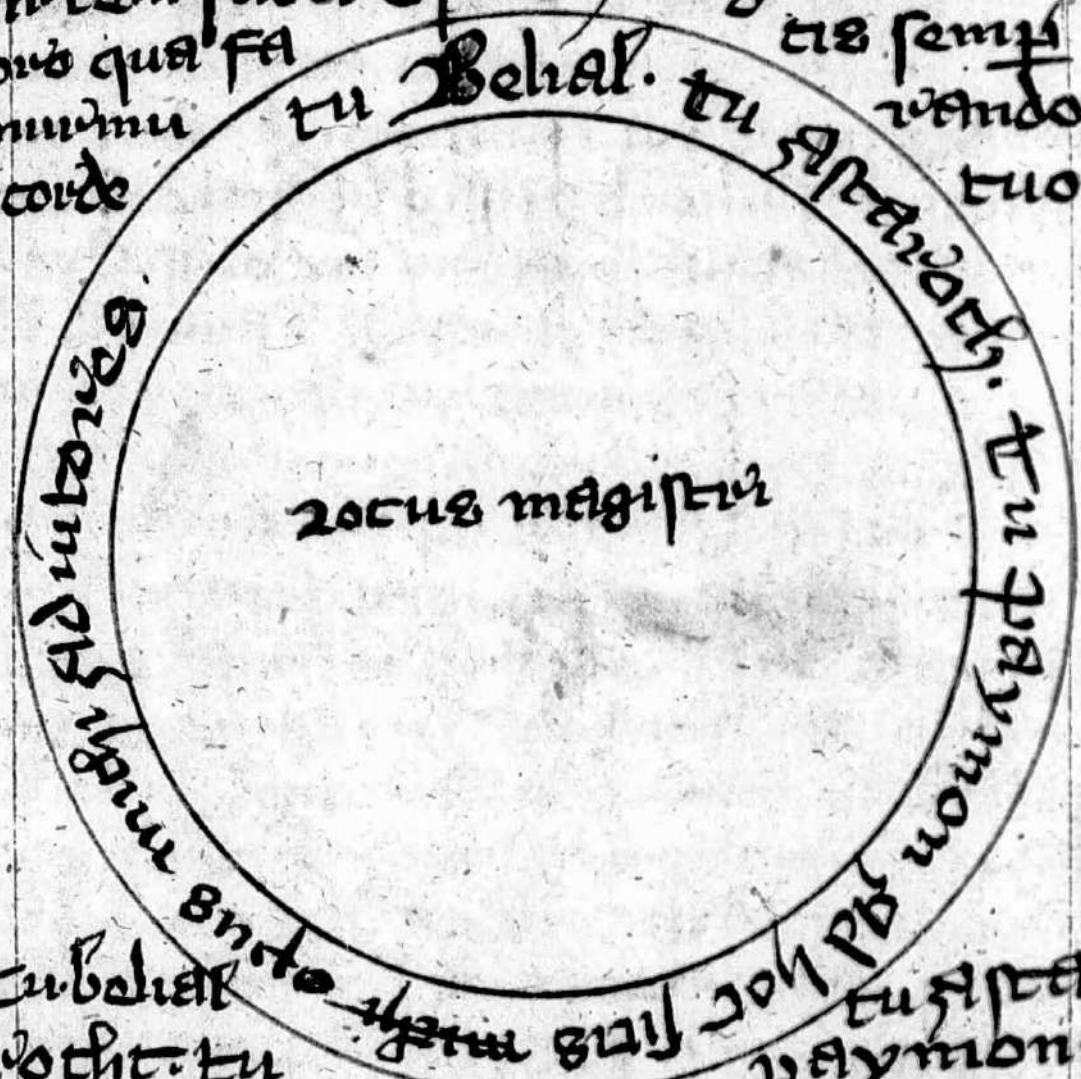 qua fa
tis semp
corde
tuo
tu Belial. tu Astaroth. Tu paymon Ad hoc sitis michi opus michi Adiutores.
Locus magistri
tu. belial
tu Asta
roth. tu
paymon